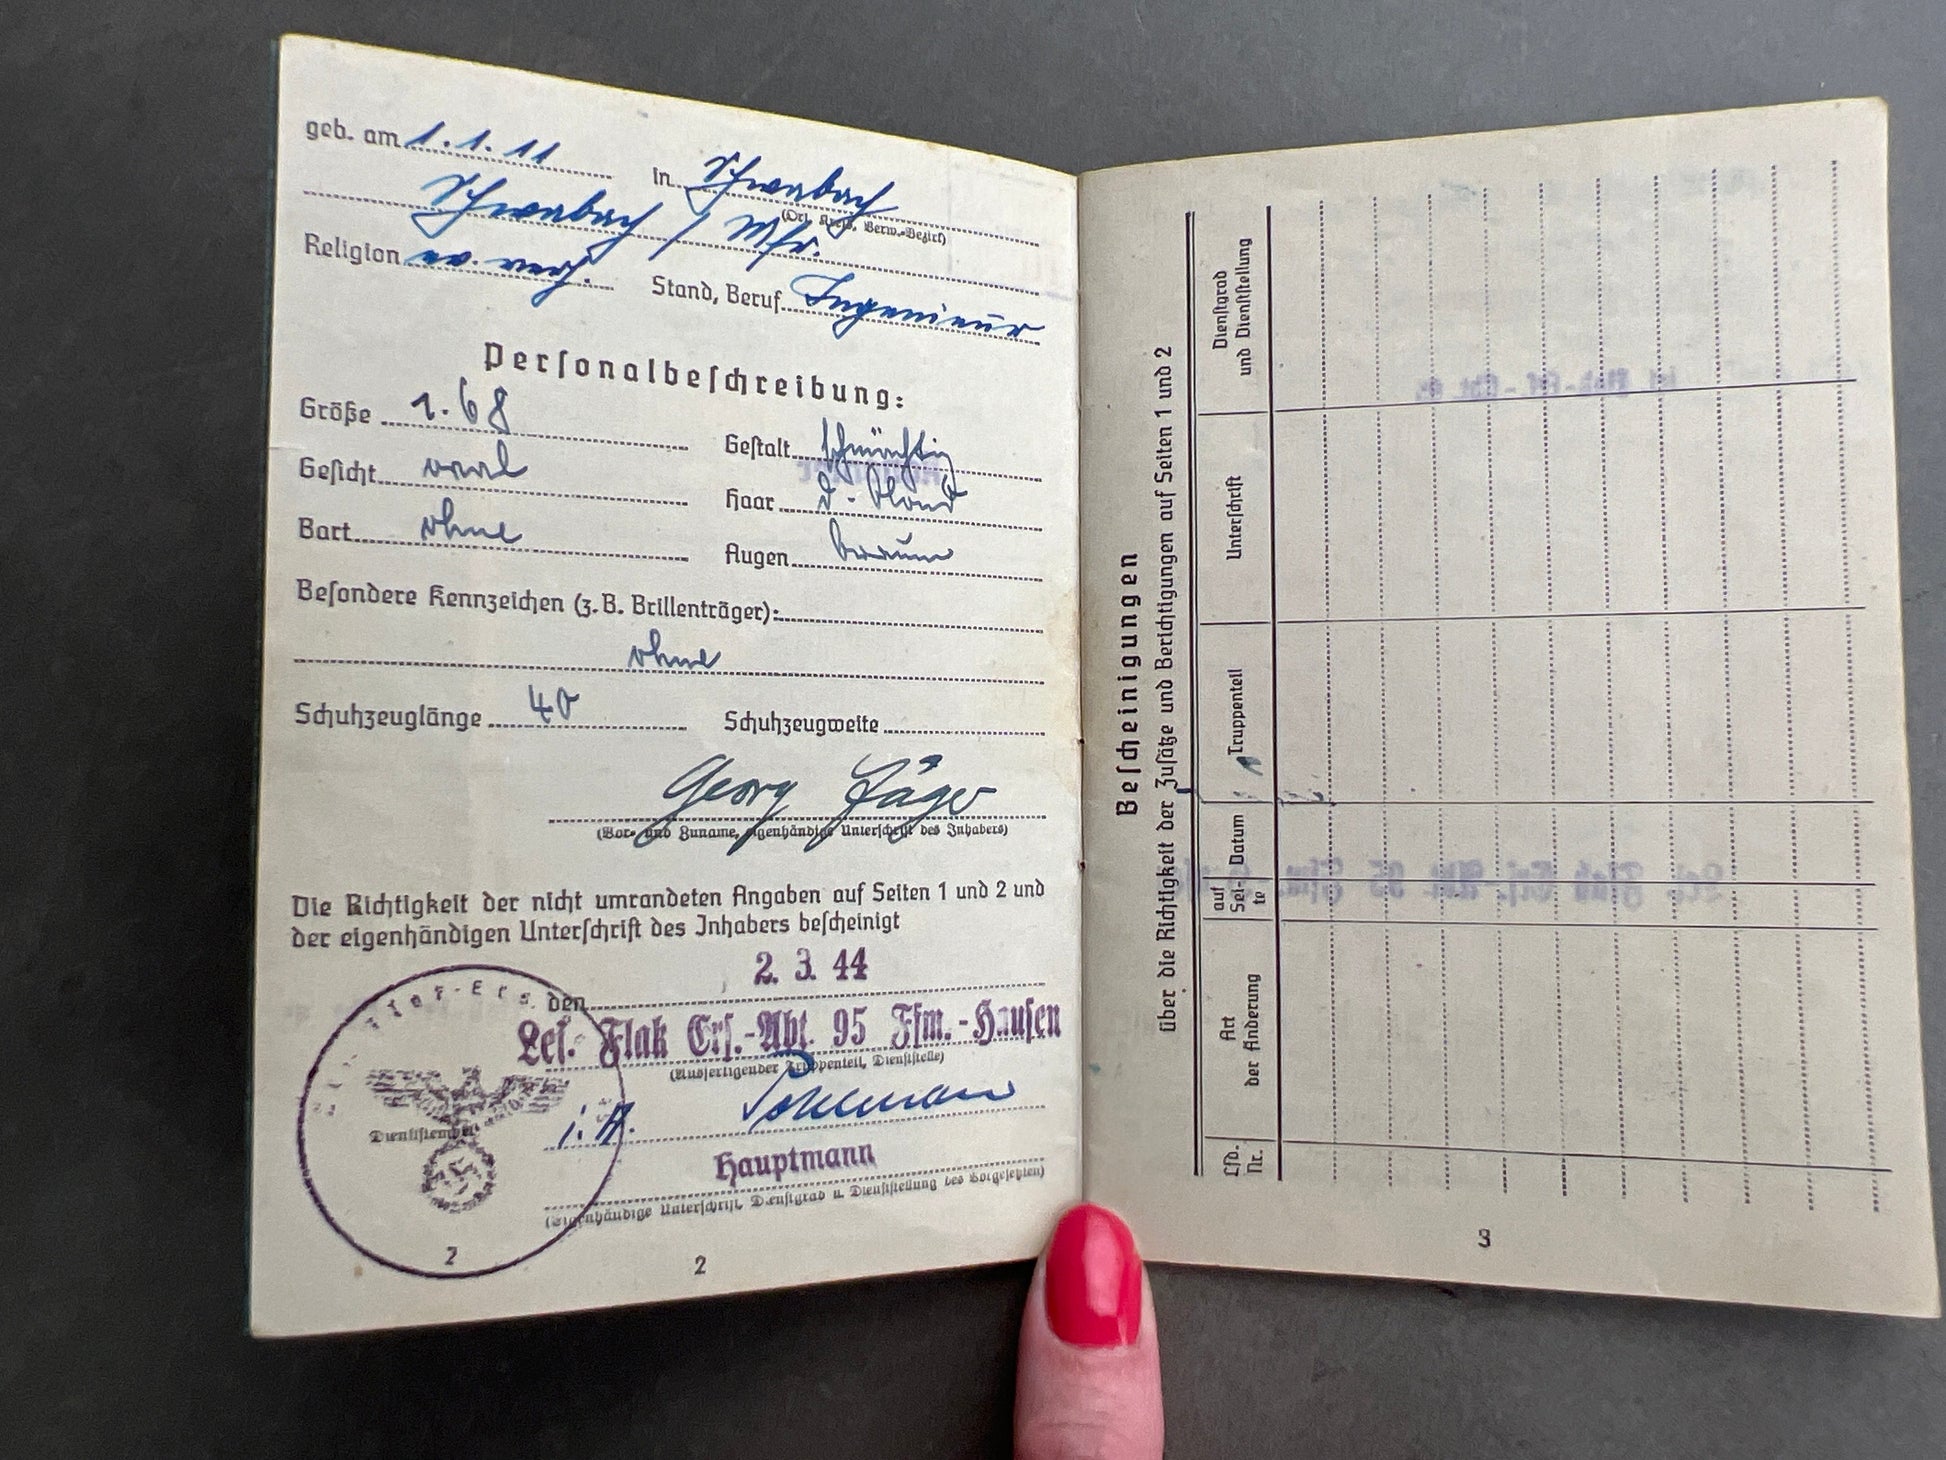 geb. am 1.1.11 in Schwabach
(Ort, Kreis, Verw.-Bezirk)
Schwabach / Mfr.
Religion Stand, Beruf Ingenieur
Personalbeschreibung:
Größe 1.68 Gestalt schmächtig
Gesicht oval Haar d.-blond
Bart ohne Augen braun
Besondere Kennzeichen (z.B. Brillenträger):
ohne
Schuhzeuglänge 40 Schuhzeugweite
Georg Jäger
(Vor- und Zuname, eigenhändige Unterschrift des Inhabers)
Die Richtigkeit der nicht umrandeten Angaben auf Seiten 1 und 2 und
der eigenhändigen Unterschrift des Inhabers bescheinigt
den 2. 3. 44
Lei. Flak Ers.-Abt. 95 Ffm.-Hausen
(Ausfertigender Truppenteil, Dienststelle)
Dienststempel
i.A.
Hauptmann
(Eigenhändige Unterschrift, Dienstgrad u. Dienststellung des Vorgesetzten)
2
2
Bescheinigungen
über die Richtigkeit der Zusätze und Berichtigungen auf Seiten 1 und 2
Lfd. Nr.
Art der Änderung
auf Sei-te
Datum
Truppenteil
Unterschrift
Dienstgrad und Dienststellung
3